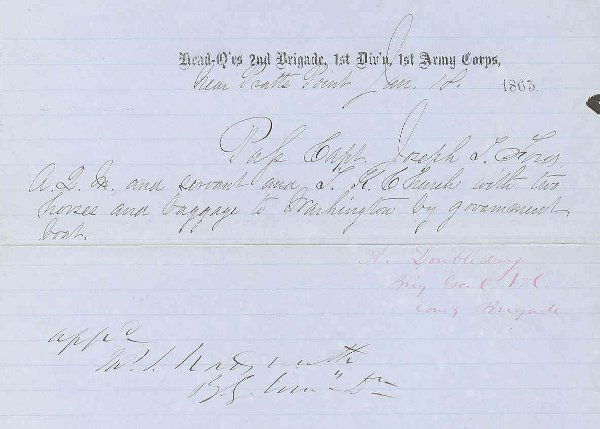 Head-Q'rs 2nd Brigade, 1st Div'n, 1st Army Corps,
near Pratts Point Jan. 18. 1863.
Pass Capt. Joseph T.
A. Q. M. and servant and with two
horses and baggage to Washington by government
boat.
A. Doubleday
Brig Genl Vol.
Comg Brigade
app'd
Wadsworth
B.G.